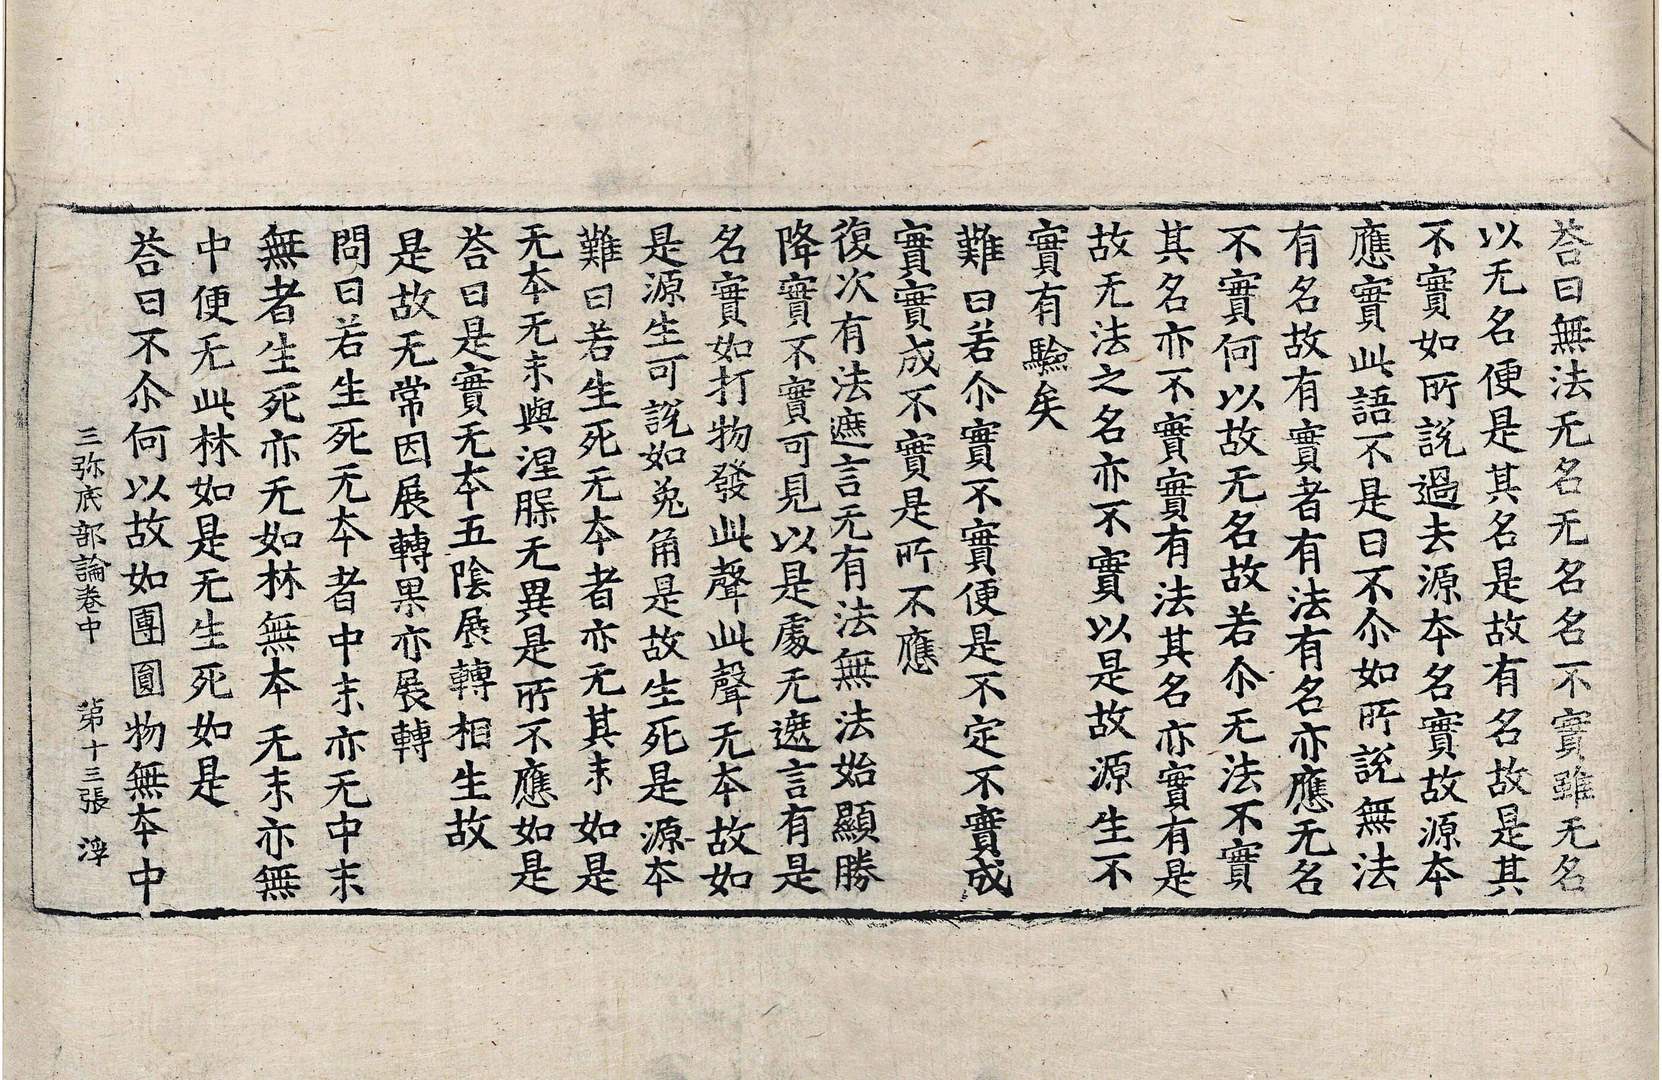 荅曰無法无名无名名不實雖无名
以无名便是其名是故有名故是其
不實如所説過去源夲名實故源夲
應實此語不是曰不尒如所説無法
有名故有實者有法有名亦應无名
不實何以故无名故若尒无法不實
其名亦不實實有法其名亦實有是
故无法之名亦不實以是故源生不
實有驗矣
難曰若尒實不實便是不定不實成
實實成不實是所不應
復次有法遮言无有法無法始顯勝
降實不實可見以是處无遮言有是
名實如打物發此聲此聲无夲故如
是源生可説如兎角是故生死是源夲
難曰若生死无夲者亦无其末如是
无夲无末與涅槃无異是所不應如是
荅曰是實无夲五陰展轉相生故
是故无常因展轉果亦展轉
問曰若生死无夲者中末亦无中末
無者生死亦无如林無夲无末亦無
中便无此林如是无生死如是
荅曰不尒何以故如團圓物無夲中
三弥底部論卷中　第十三張　淳